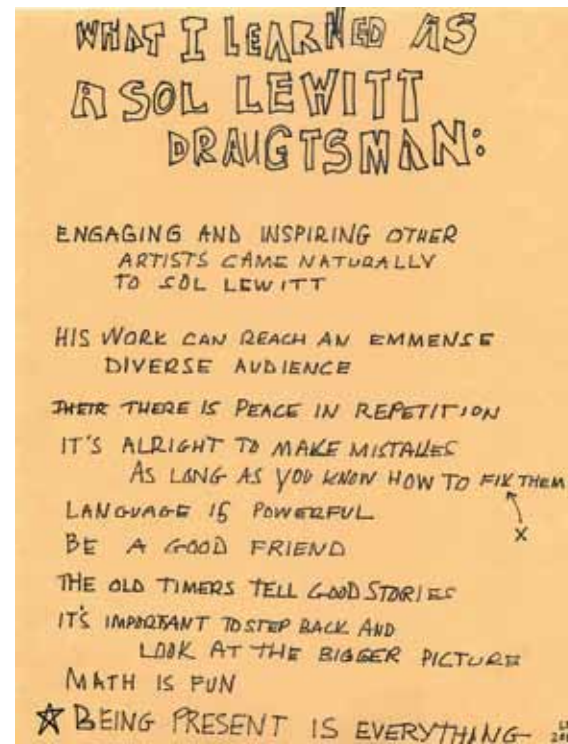 WHAT I LEARNED AS
A SOL LEWITT
DRAUGTSMAN:
ENGAGING AND INSPIRING OTHER
ARTISTS CAME NATURALLY
TO SOL LEWITT
HIS WORK CAN REACH AN EMMENSE
DIVERSE AUDIENCE
THEIR THERE IS PEACE IN REPETITION
IT'S ALRIGHT TO MAKE MISTAKES
AS LONG AS YOU KNOW HOW TO FIX THEM
X
LANGUAGE IS POWERFUL
BE A GOOD FRIEND
THE OLD TIMERS TELL GOOD STORIES
IT'S IMPORTANT TO STEP BACK AND
LOOK AT THE BIGGER PICTURE
MATH IS FUN
BEING PRESENT IS EVERYTHING